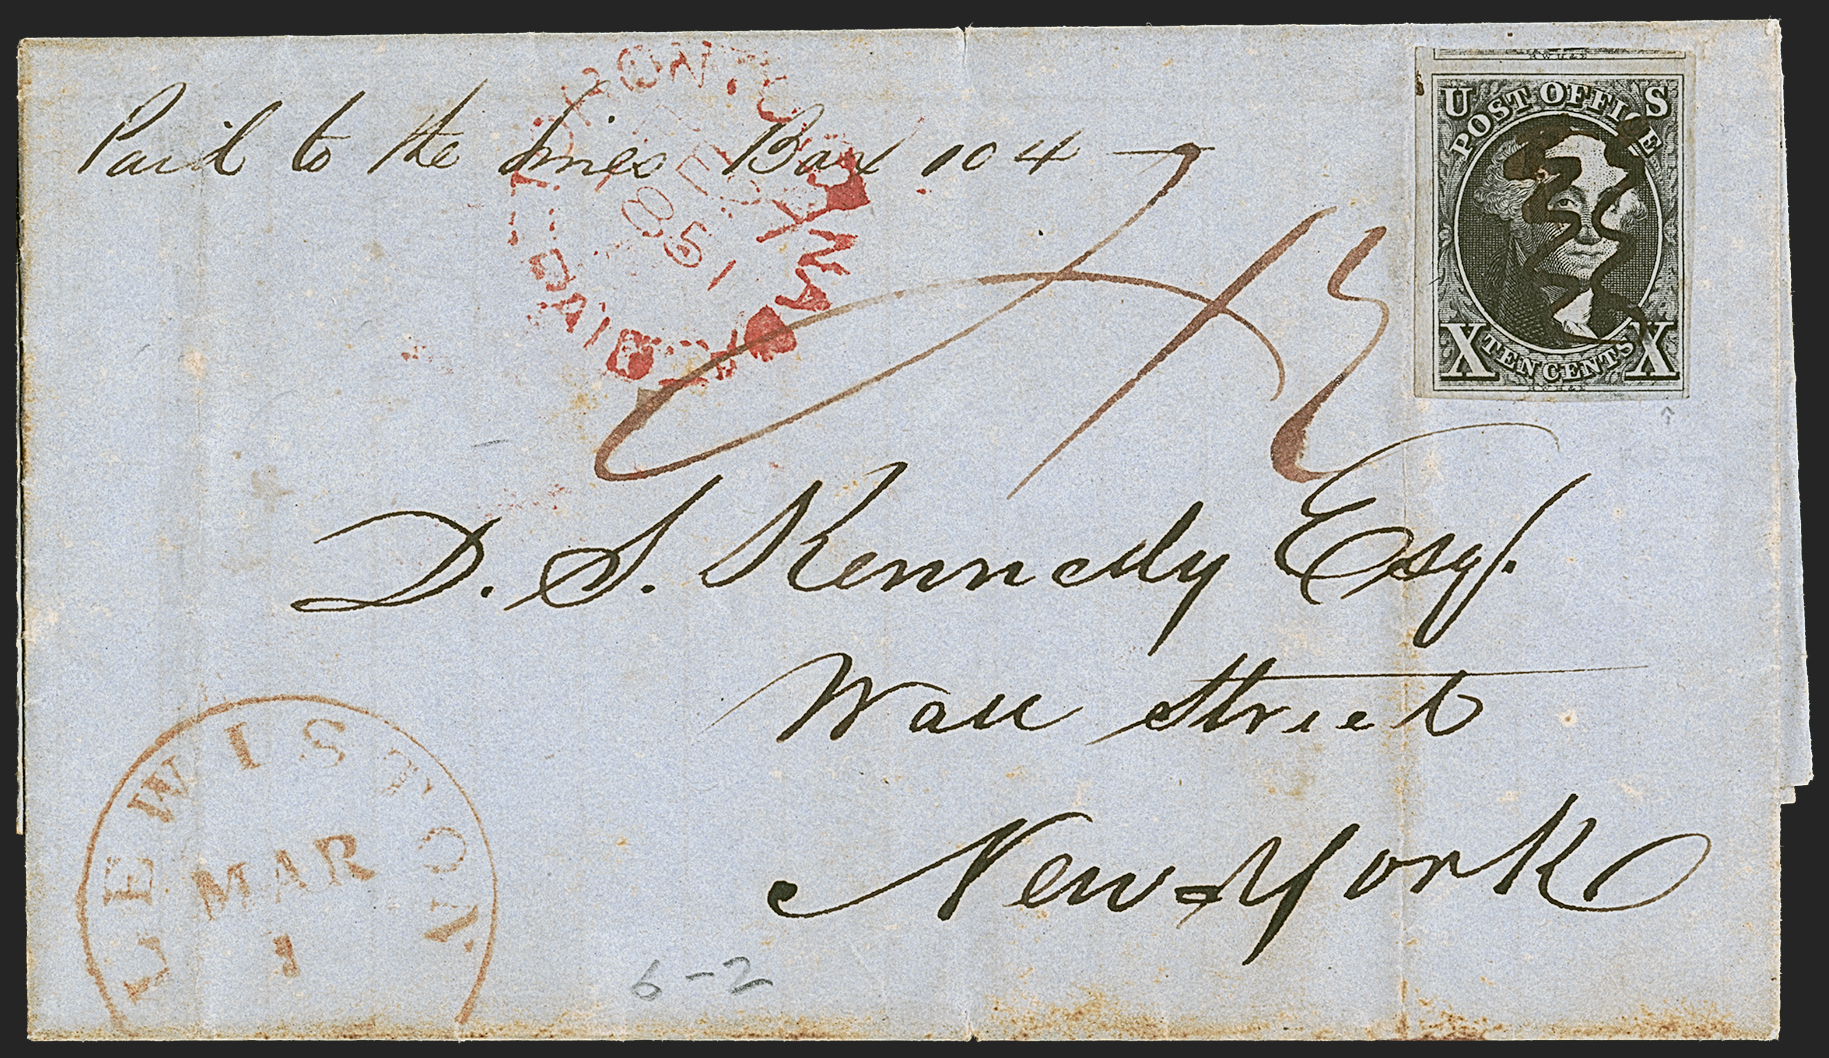 Paid to the lines Box 104
1851
PAID
U S
POST OFFICE
X TEN CENTS X
D. S. Kennedy Esqr.
Wall Street
New York
LEWISTON
MAR
1
6-2